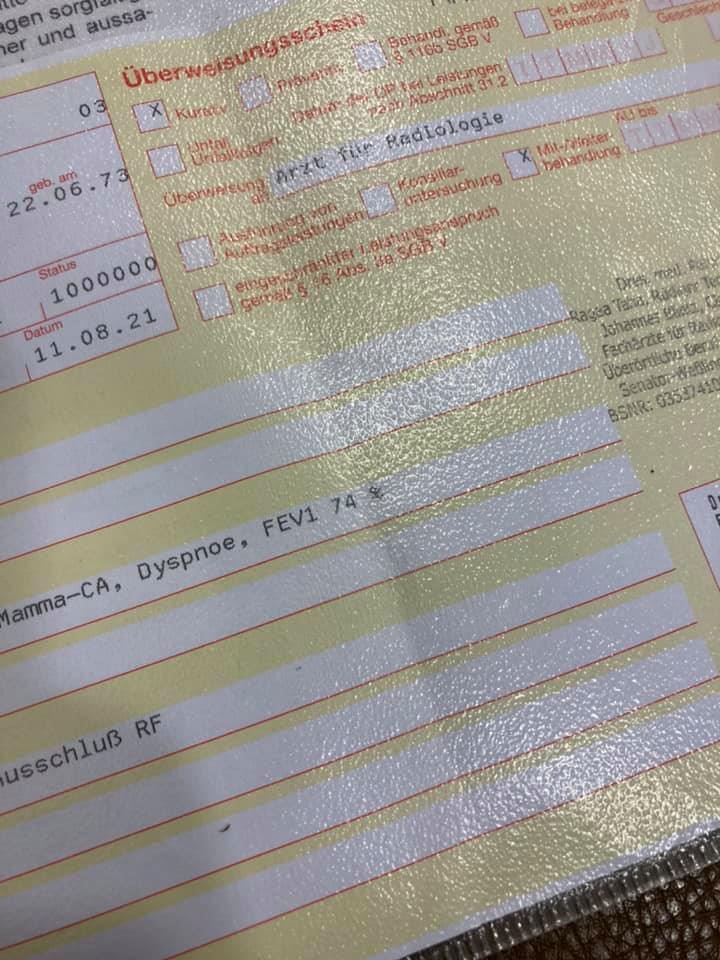 agen
ner und aussa-
Überweisungsschein
03
X Kurativ
Behandl. gemäß
§ 116b SGB V
bei belegärztl.
Behandlung
Unfall
Unfallfolgen
Datum der OP bei Leistungen
nach Abschnitt 31.2
geb. am
22.06.73
Überweisung
an
Arzt für Radiologie
AU bis
Ausführung von
Auftragsleistungen
Konsiliar-
untersuchung
X Mit-/Weiter-
behandlung
Status
1000000
eingeschränkter Leistungsanspruch
gemäß § 16 Abs.
SGB V
Datum
11.08.21
Dres. med.
Johannes
Fachärzte für
Überörtliche
Senator-
BSNR:
Mamma-CA, Dyspnoe, FEV1 74 %
usschluß RF